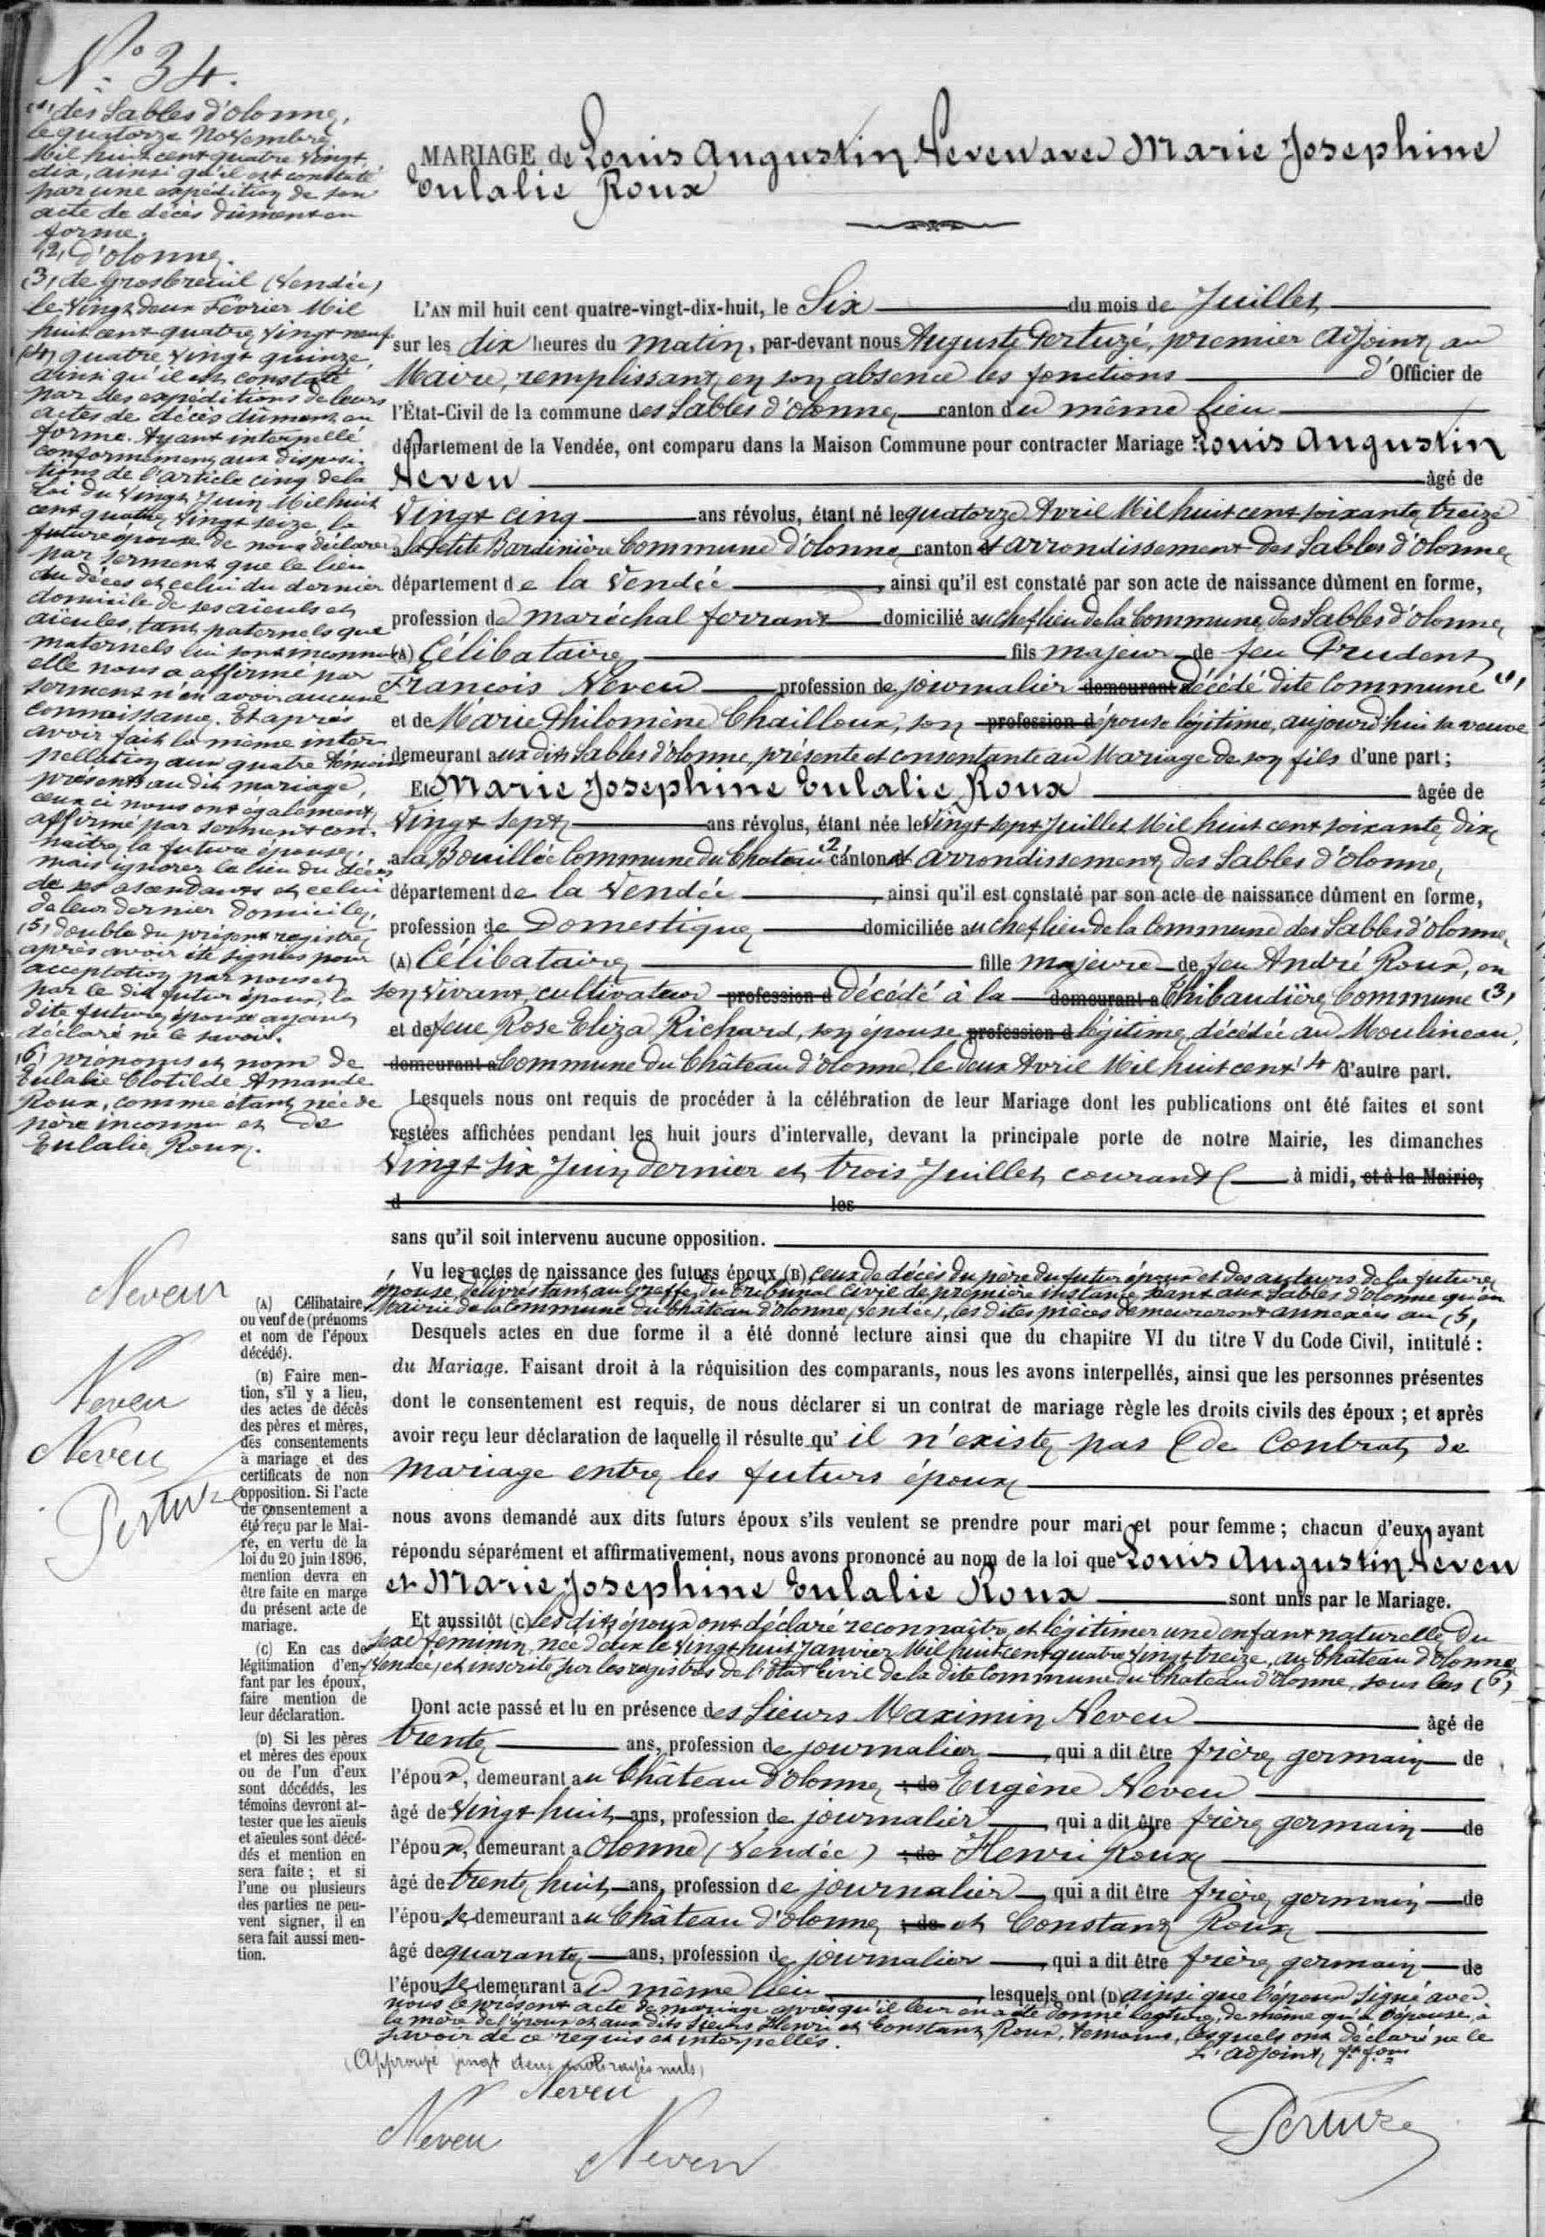 N° 34.
(1) des Sables d'olonne,
le quatorze Novembre
Mil huit cent quatre vingt
dix, ainsi qu'il est constaté
par une expédition de son
acte de décès dûment en
forme.
(2) d'olonne.
(3) de Grosbreuil (Vendée)
le Vingt deux Février Mil
huit cent quatre vingt neuf
(4) quatre vingt quinze,
ainsi qu'il est constaté
par des expéditions de leurs
actes de décès dûment en
forme. Ayant interpellé
conformément aux disposi-
tions de l'article cinq de la
Loi du Vingt Juin Mil huit
cent quatre vingt seize la
future épouse de nous déclarer
par serment que le lieu
du décès et celui du dernier
domicile de ses aïeuls et
aïeules, tant paternels que
maternels lui sont inconnus
elle nous a affirmé par
serment n'en avoir aucune
connaissance. Et après
avoir fait la même inter
pellation aux quatre témoins
présents au dit mariage,
ceux ci nous ont également
affirmé par serment con-
naître la future épouse,
mais ignorer le lieu du décès
de ses ascendants et celui
de leur dernier domicile.
(5) double du présent registre
après avoir été signées pour
acceptation par nous et
par le dit futur époux, la
dite future épouse ayant
déclaré ne le savoir.
(6) prénoms et nom de
Eulalie Clotilde Amande
Roux, comme étant née de
père inconnu et de
Eulalie Roux.
Neveu
Neveu
Neveu
Pertuzé
(A) Célibataire
ou veuf de (prénoms
et nom de l'époux
décédé).
(B) Faire men-
tion, s'il y a lieu,
des actes de décès
des pères et mères,
des consentements
à mariage et des
certificats de non
opposition. Si l'acte
de consentement a
été reçu par le Mai-
re, en vertu de la
loi du 20 juin 1896,
mention devra en
être faite en marge
du présent acte de
mariage.
(C) En cas de
légitimation d'en-
fant par les époux,
faire mention de
leur déclaration.
(D) Si les pères
et mères des époux
ou de l'un d'eux
sont décédés, les
témoins devront at-
tester que les aïeuls
et aïeules sont décé-
dés et mention en
sera faite ; et si
l'une ou plusieurs
des parties ne peu-
vent signer, il en
sera fait aussi men-
tion.
MARIAGE de Louis Augustin Neveu avec Marie Josephine
Eulalie Roux
L'AN mil huit cent quatre-vingt-dix-huit, le Six du mois de Juillet
sur les dix heures du matin, par-devant nous Auguste Pertuzé, premier Adjoint au
Maire, remplissant en son absence les fonctions d'Officier de
l'État-Civil de la commune des Sables d'olonne canton du même lieu
département de la Vendée, ont comparu dans la Maison Commune pour contracter Mariage : Louis Augustin
Neveu âgé de
Vingt cinq ans révolus, étant né le quatorze Avril Mil huit cent soixante treize
à la Petite Bardinière Commune d'Olonne canton et arrondissement des Sables d'olonne
département de la Vendée, ainsi qu'il est constaté par son acte de naissance dûment en forme,
profession de maréchal ferrant domicilié au chef lieu de la Commune des Sables d'olonne,
(A) Célibataire fils majeur de feu Prudent
François Neveu profession de journalier demeurant décédé dite Commune (1)
et de Marie Philomène Chailloux, son profession d épouse légitime, aujourd'hui sa veuve
demeurant aux dits Sables d'olonne, présente et consentante au Mariage de son fils d'une part ;
Et Marie Josephine Eulalie Roux âgée de
Vingt sept ans révolus, étant née le Vingt sept Juillet Mil huit cent soixante dix
à la Bouillée Commune du Chateau (2) canton et arrondissement des Sables d'olonne,
département de la Vendée, ainsi qu'il est constaté par son acte de naissance dûment en forme,
profession de Domestique domiciliée au chef lieu de la Commune des Sables d'olonne,
(A) Célibataire fille majeure de feu André Roux, en
son vivant, cultivateur profession d Décédé à la demeurant à Thibaudière Commune (3)
et de feue Rose Eliza Richard, son épouse profession d légitime, décédée au Moulineau,
demeurant à Commune du Château d'olonne, le deux Avril Mil huit cent (4) d'autre part.
Lesquels nous ont requis de procéder à la célébration de leur Mariage dont les publications ont été faites et sont
restées affichées pendant les huit jours d'intervalle, devant la principale porte de notre Mairie, les dimanches
Vingt six Juin dernier et trois Juillet courant à midi, et à la Mairie,
d les
sans qu'il soit intervenu aucune opposition.
Vu les actes de naissance des futurs époux (B) ceux de décès du père du futur époux et des auteurs de la future
épouse, délivrés tant au Greffe du Tribunal Civil de première instance séant aux Sables d'olonne qu'en
Mairie de la Commune du Château d'olonne (Vendée), les dites pièces demeureront annexées au (5)
Desquels actes en due forme il a été donné lecture ainsi que du chapitre VI du titre V du Code Civil, intitulé :
du Mariage. Faisant droit à la réquisition des comparants, nous les avons interpellés, ainsi que les personnes présentes
dont le consentement est requis, de nous déclarer si un contrat de mariage règle les droits civils des époux ; et après
avoir reçu leur déclaration de laquelle il résulte qu'il n'existe pas de Contrat de
mariage entre les futurs époux
nous avons demandé aux dits futurs époux s'ils veulent se prendre pour mari et pour femme ; chacun d'eux ayant
répondu séparément et affirmativement, nous avons prononcé au nom de la loi que Louis Augustin Neveu
et Marie Josephine Eulalie Roux sont unis par le Mariage.
Et aussitôt (C) les dits époux ont déclaré reconnaître et légitimer une enfant naturelle du
sexe féminin, née d'eux le Vingt huit Janvier Mil huit cent quatre vingt treize, au Château d'olonne
(Vendée) et inscrite sur les registres de l'état civil de la dite Commune du Chateau d'olonne, sous les (6)
Dont acte passé et lu en présence des Sieurs Maximin Neveu âgé de
trente ans, profession de journalier, qui a dit être frère germain de
l'époux, demeurant au Château d'olonne ; de Eugène Neveu
âgé de Vingt huit ans, profession de journalier, qui a dit être frère germain de
l'époux, demeurant à Olonne (Vendée) ; de Henri Roux
âgé de trente huit ans, profession de journalier, qui a dit être frère germain de
l'épouse demeurant au Château d'olonne ; de et Constant Roux
âgé de quarante ans, profession de journalier, qui a dit être frère germain de
l'épouse demeurant au même lieu, lesquels ont (D) ainsi que l'époux signé avec
nous le présent acte de mariage après qu'il leur en a été donné lecture, de même qu'à l'épouse, à
la mère de l'époux et aux dits Sieurs Henri et Constant Roux, témoins, lesquels ont déclaré ne le
savoir de ce requis et interpellés.
L'adjoint, f.f.ons
(Approuvé vingt deux mots rayés nuls)
Neveu
Neveu
Neveu
Pertuzé